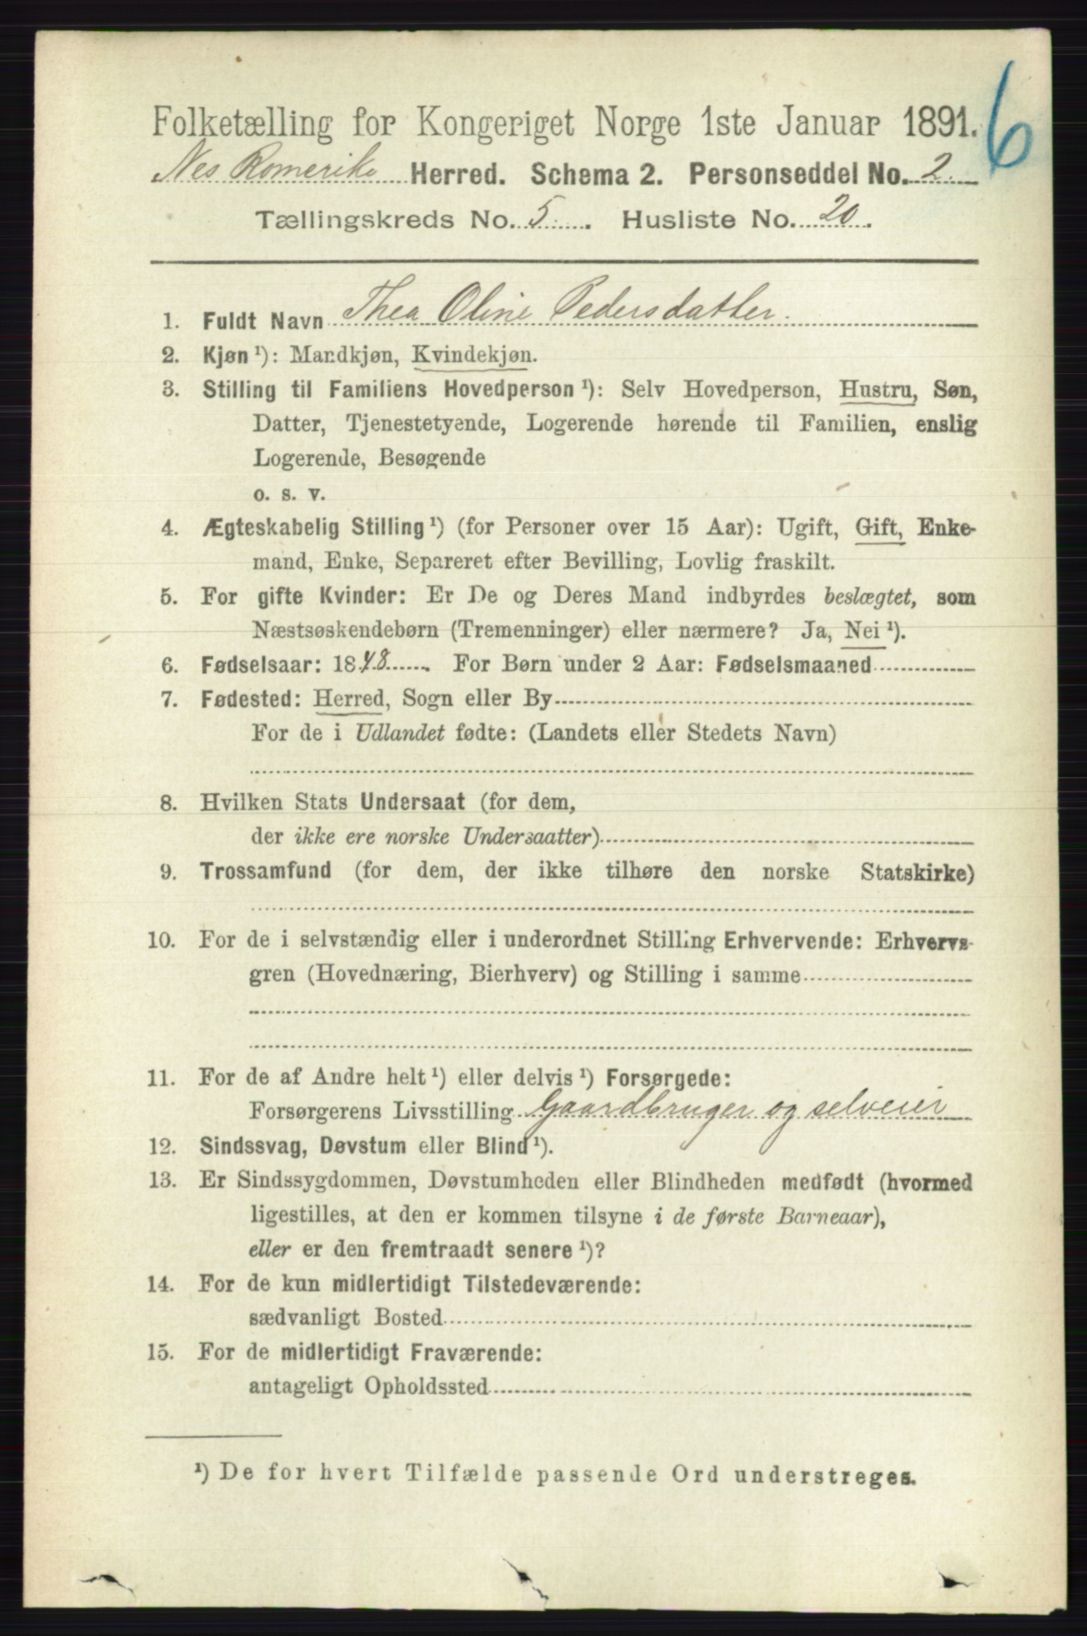 6
Folketælling for Kongeriget Norge 1ste Januar 1891.
Nes Romerike Herred. Schema 2. Personseddel No. 2.
Tællingskreds No. 5. Husliste No. 20.
1. Fuldt Navn Thea Oline Pedersdatter.
2. Kjøn ¹): Mandkjøn, Kvindekjøn.
3. Stilling til Familiens Hovedperson ¹): Selv Hovedperson, Hustru, Søn,
Datter, Tjenestetyende, Logerende hørende til Familien, enslig
Logerende, Besøgende
o. s. v.
4. Ægteskabelig Stilling ¹) (for Personer over 15 Aar): Ugift, Gift, Enke-
mand, Enke, Separeret efter Bevilling, Lovlig fraskilt.
5. For gifte Kvinder: Er De og Deres Mand indbyrdes beslægtet, som
Næstsøskendebørn (Tremenninger) eller nærmere? Ja, Nei ¹).
6. Fødselsaar: 1848. For Børn under 2 Aar: Fødselsmaaned
7. Fødested: Herred, Sogn eller By
For de i Udlandet fødte: (Landets eller Stedets Navn)
8. Hvilken Stats Undersaat (for dem,
der ikke ere norske Undersaatter)
9. Trossamfund (for dem, der ikke tilhøre den norske Statskirke)
10. For de i selvstændig eller i underordnet Stilling Erhvervende: Erhvervs-
gren (Hovednæring, Bierhverv) og Stilling i samme
11. For de af Andre helt ¹) eller delvis ¹) Forsørgede:
Forsørgerens Livsstilling Gaardbruger og selveier
12. Sindssvag, Døvstum eller Blind ¹).
13. Er Sindssygdommen, Døvstumheden eller Blindheden medfødt (hvormed
ligestilles, at den er kommen tilsyne i de første Barneaar),
eller er den fremtraadt senere ¹)?
14. For de kun midlertidigt Tilstedeværende:
sædvanligt Bosted
15. For de midlertidigt Fraværende:
antageligt Opholdssted
¹) De for hvert Tilfælde passende Ord understreges.